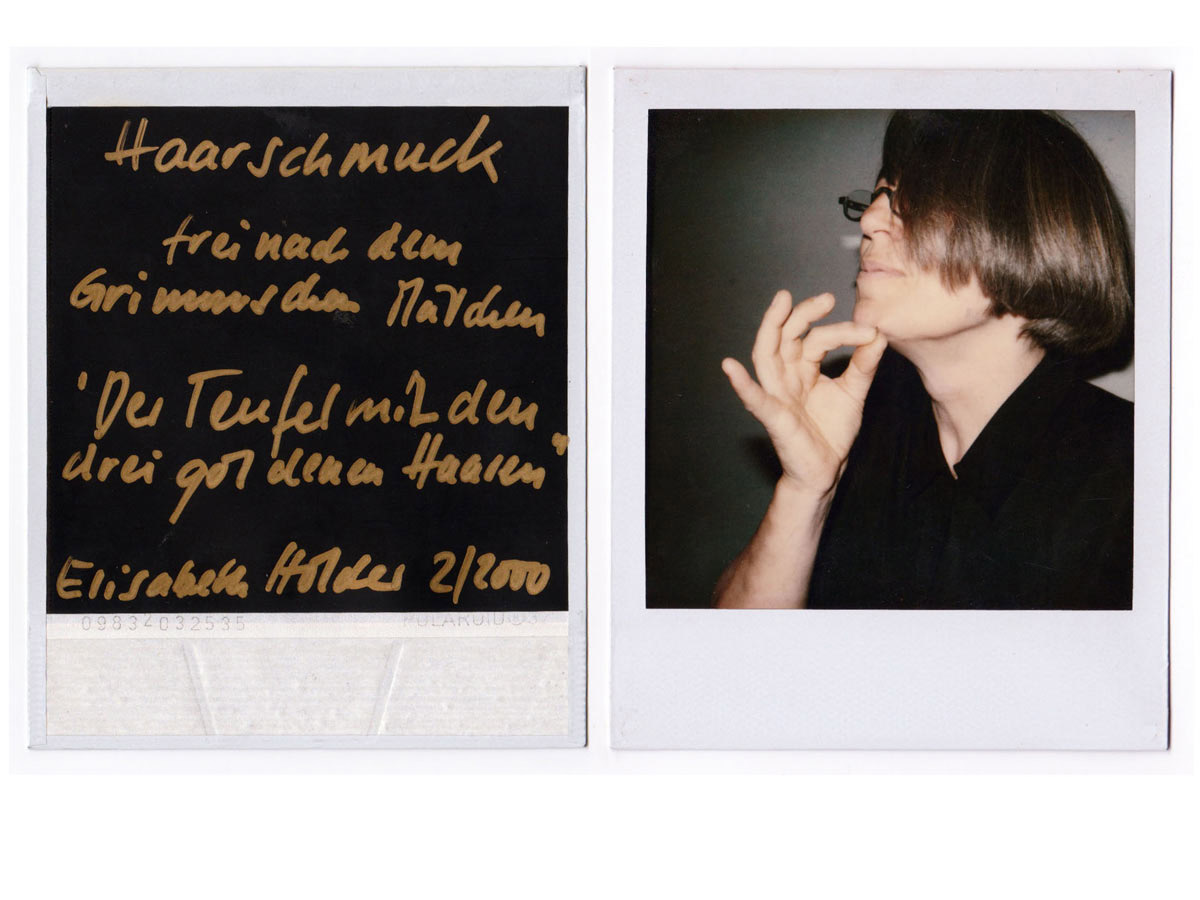 Haarschmuck
frei nach dem
Grimmschen Märchen
"Der Teufel mit den
drei goldenen Haaren"
Elisabeth Holder 2/2000
09834032535 POLAROID®3